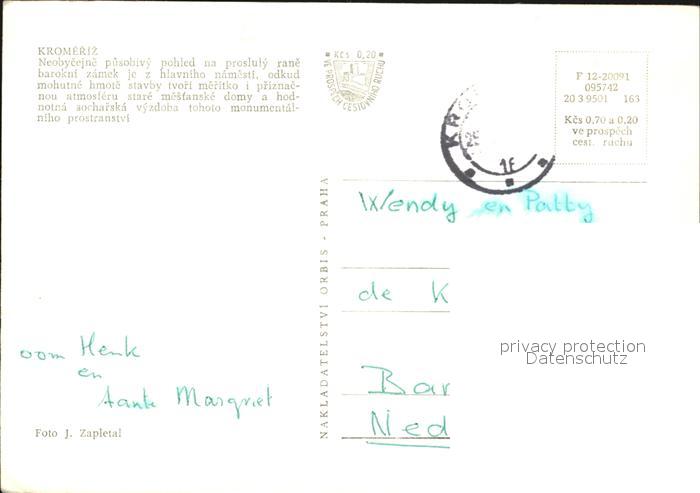 KROMĚŘÍŽ
Neobyčejně působivý pohled na proslulý raně
barokní zámek je z hlavního náměstí, odkud
mohutné hmotě stavby tvoří měřítko i příznač-
nou atmosféru staré měšťanské domy a hod-
notná sochařská výzdoba tohoto monumentál-
ního prostranství
Kčs 0,20
VE PROSPĚCH CESTOVNÍHO RUCHU
F 12-20091
095742
20 3 9501 163
Kčs 0,70 a 0,20
ve prospěch
cest. ruchu
KRO
1f
NAKLADATELSTVÍ ORBIS - PRAHA
Wendy en Patty
de K
Bar
Ned
privacy protection
Datenschutz
oom Henk
en
tante Margriet
Foto J. Zapletal